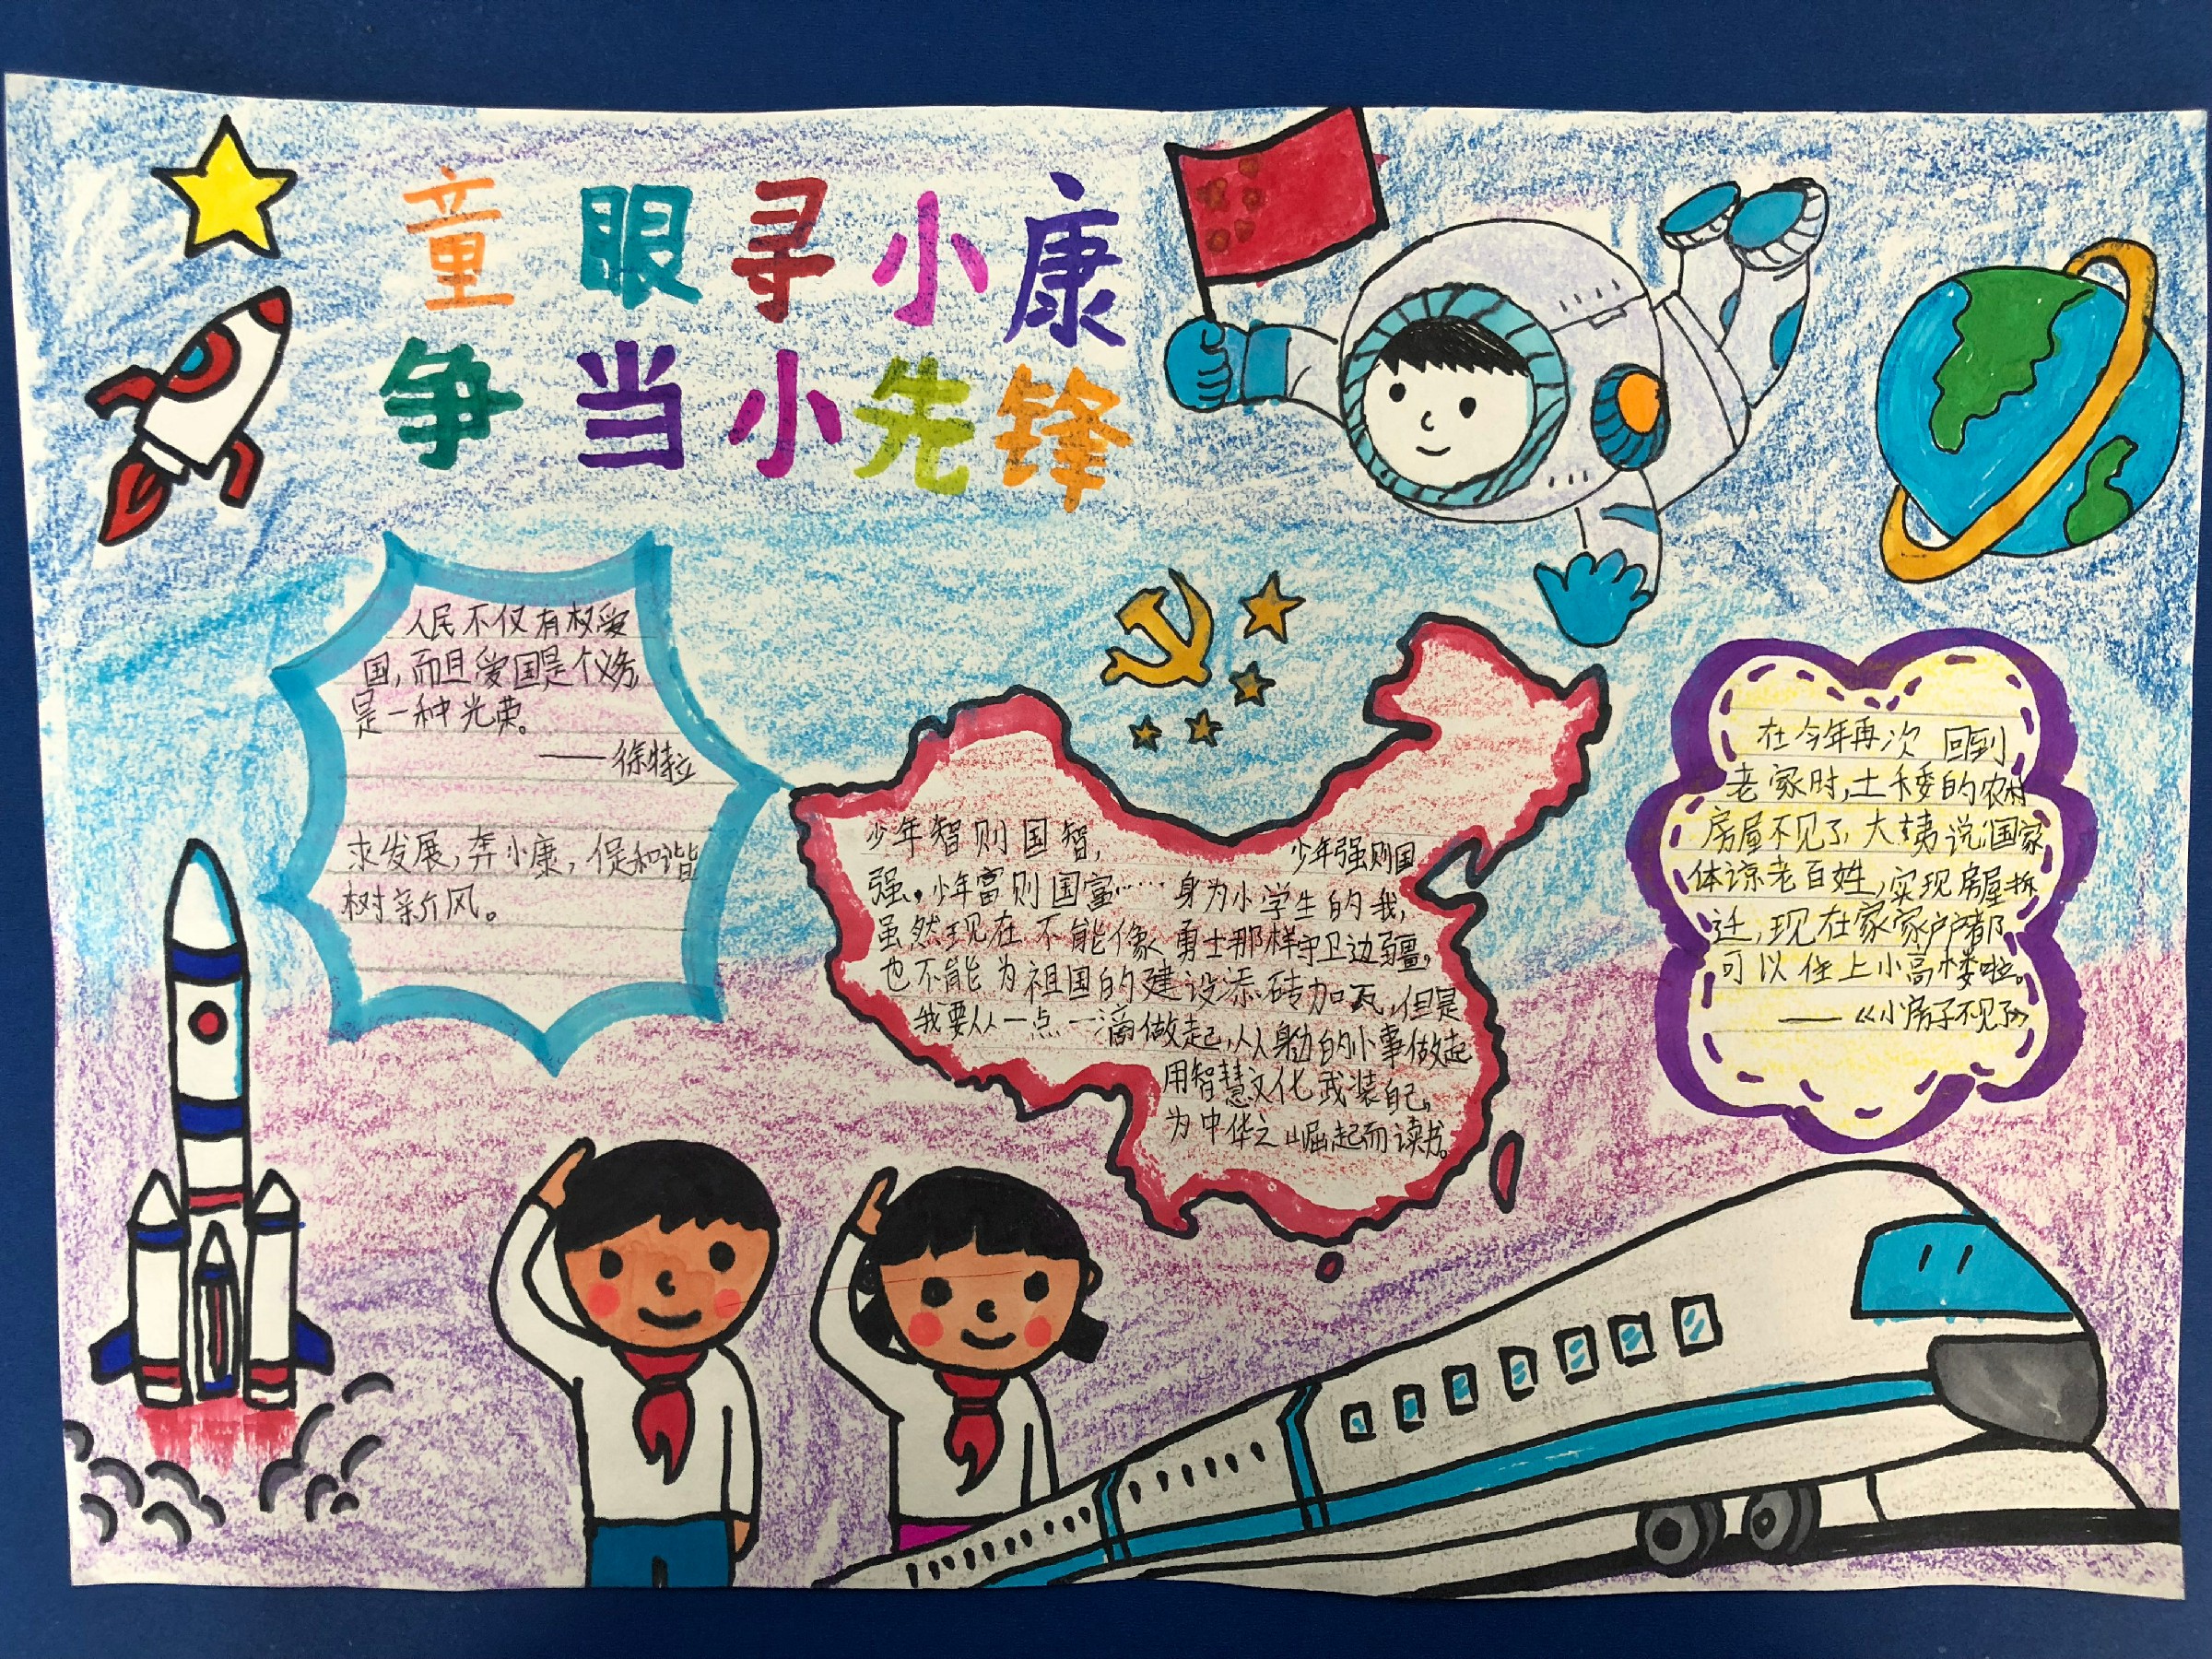 童眼寻小康
争当小先锋
人民不仅有权爱
国,而且爱国是个义务,
是一种光荣。
——徐特立
求发展,奔小康,促和谐
树新风。
少年智则国智, 少年强则国
强。少年富则国富…… 身为小学生的我,
虽然现在不能像勇士那样守卫边疆,
也不能为祖国的建设添砖加瓦,但是
我要从一点一滴做起,从身边的小事做起
用智慧文化武装自己,
为中华之崛起而读书。
在今年再次回到
老家时,土矮的农村
房屋不见了,大姨说:国家
体谅老百姓,实现房屋拆
迁,现在家家户户都
可以住上小高楼啦。
——《小房子不见了》